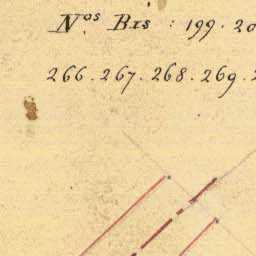 Nos Bis : 199. 20
266. 267. 268. 269. 2